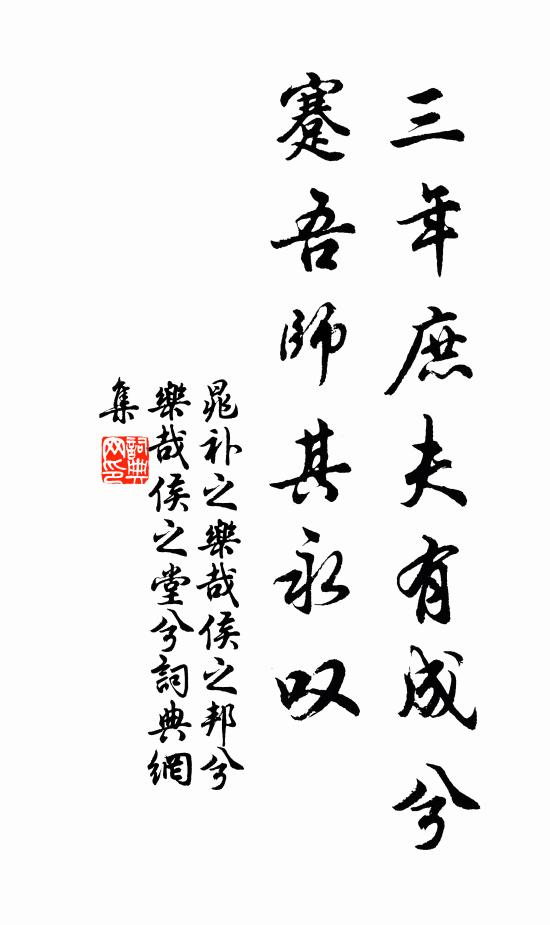 三年庶夫有成兮
蹇吾師其永叹
晁补之樂哉侯之邦兮
樂哉侯之堂兮詞典網
集
詞典
网印